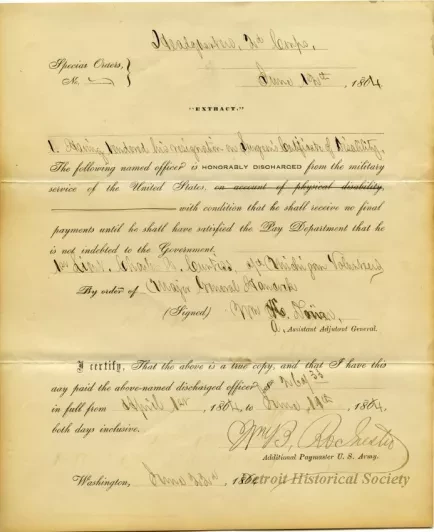 Headquarters, 2d Corps,
Special Orders,
No.
June 13th, 1864
"EXTRACT."
1. Having tendered his resignation on Surgeon's Certificate of Disability,
The following named officer is HONORABLY DISCHARGED from the military
service of the United States, on account of physical disability,
with condition that he shall receive no final
payments until he shall have satisfied the Pay Department that he
is not indebted to the Government.
1st Lieut. Michigan Volunteers
By order of Major General Hancock
(Signed) Wm
A. Assistant Adjutant General.
I certify, That the above is a true copy, and that I have this
day paid the above-named discharged officer $
in full from April 1st, 1864, to June 14th, 1864,
both days inclusive.
Wm B. Rochester
Additional Paymaster U. S. Army.
Washington, June 186
Detroit Historical Society